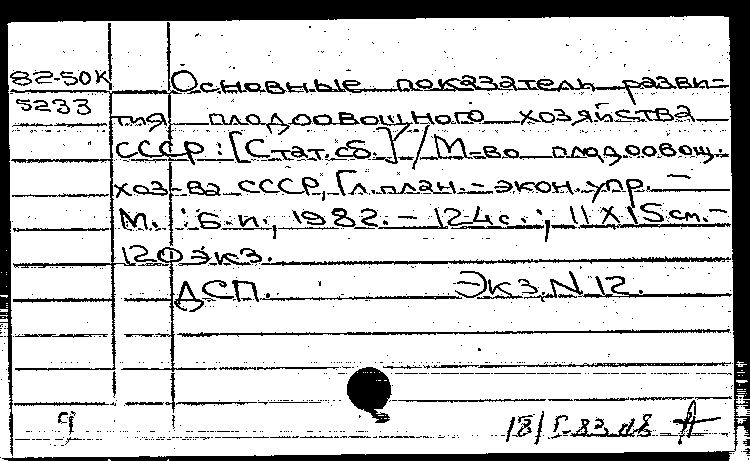 82-50К Основные показатель разви-
5233 тия плодоовощного хозяйства
СССР : [Стат. сб.] / М-во плодоовощ.
хоз-ва СССР, Гл. план.-экон. упр. –
М. : Б.и., 1982. – 124с. ; 11X15 см. –
120 экз.
ДСП. Экз. N 12.
9 18/